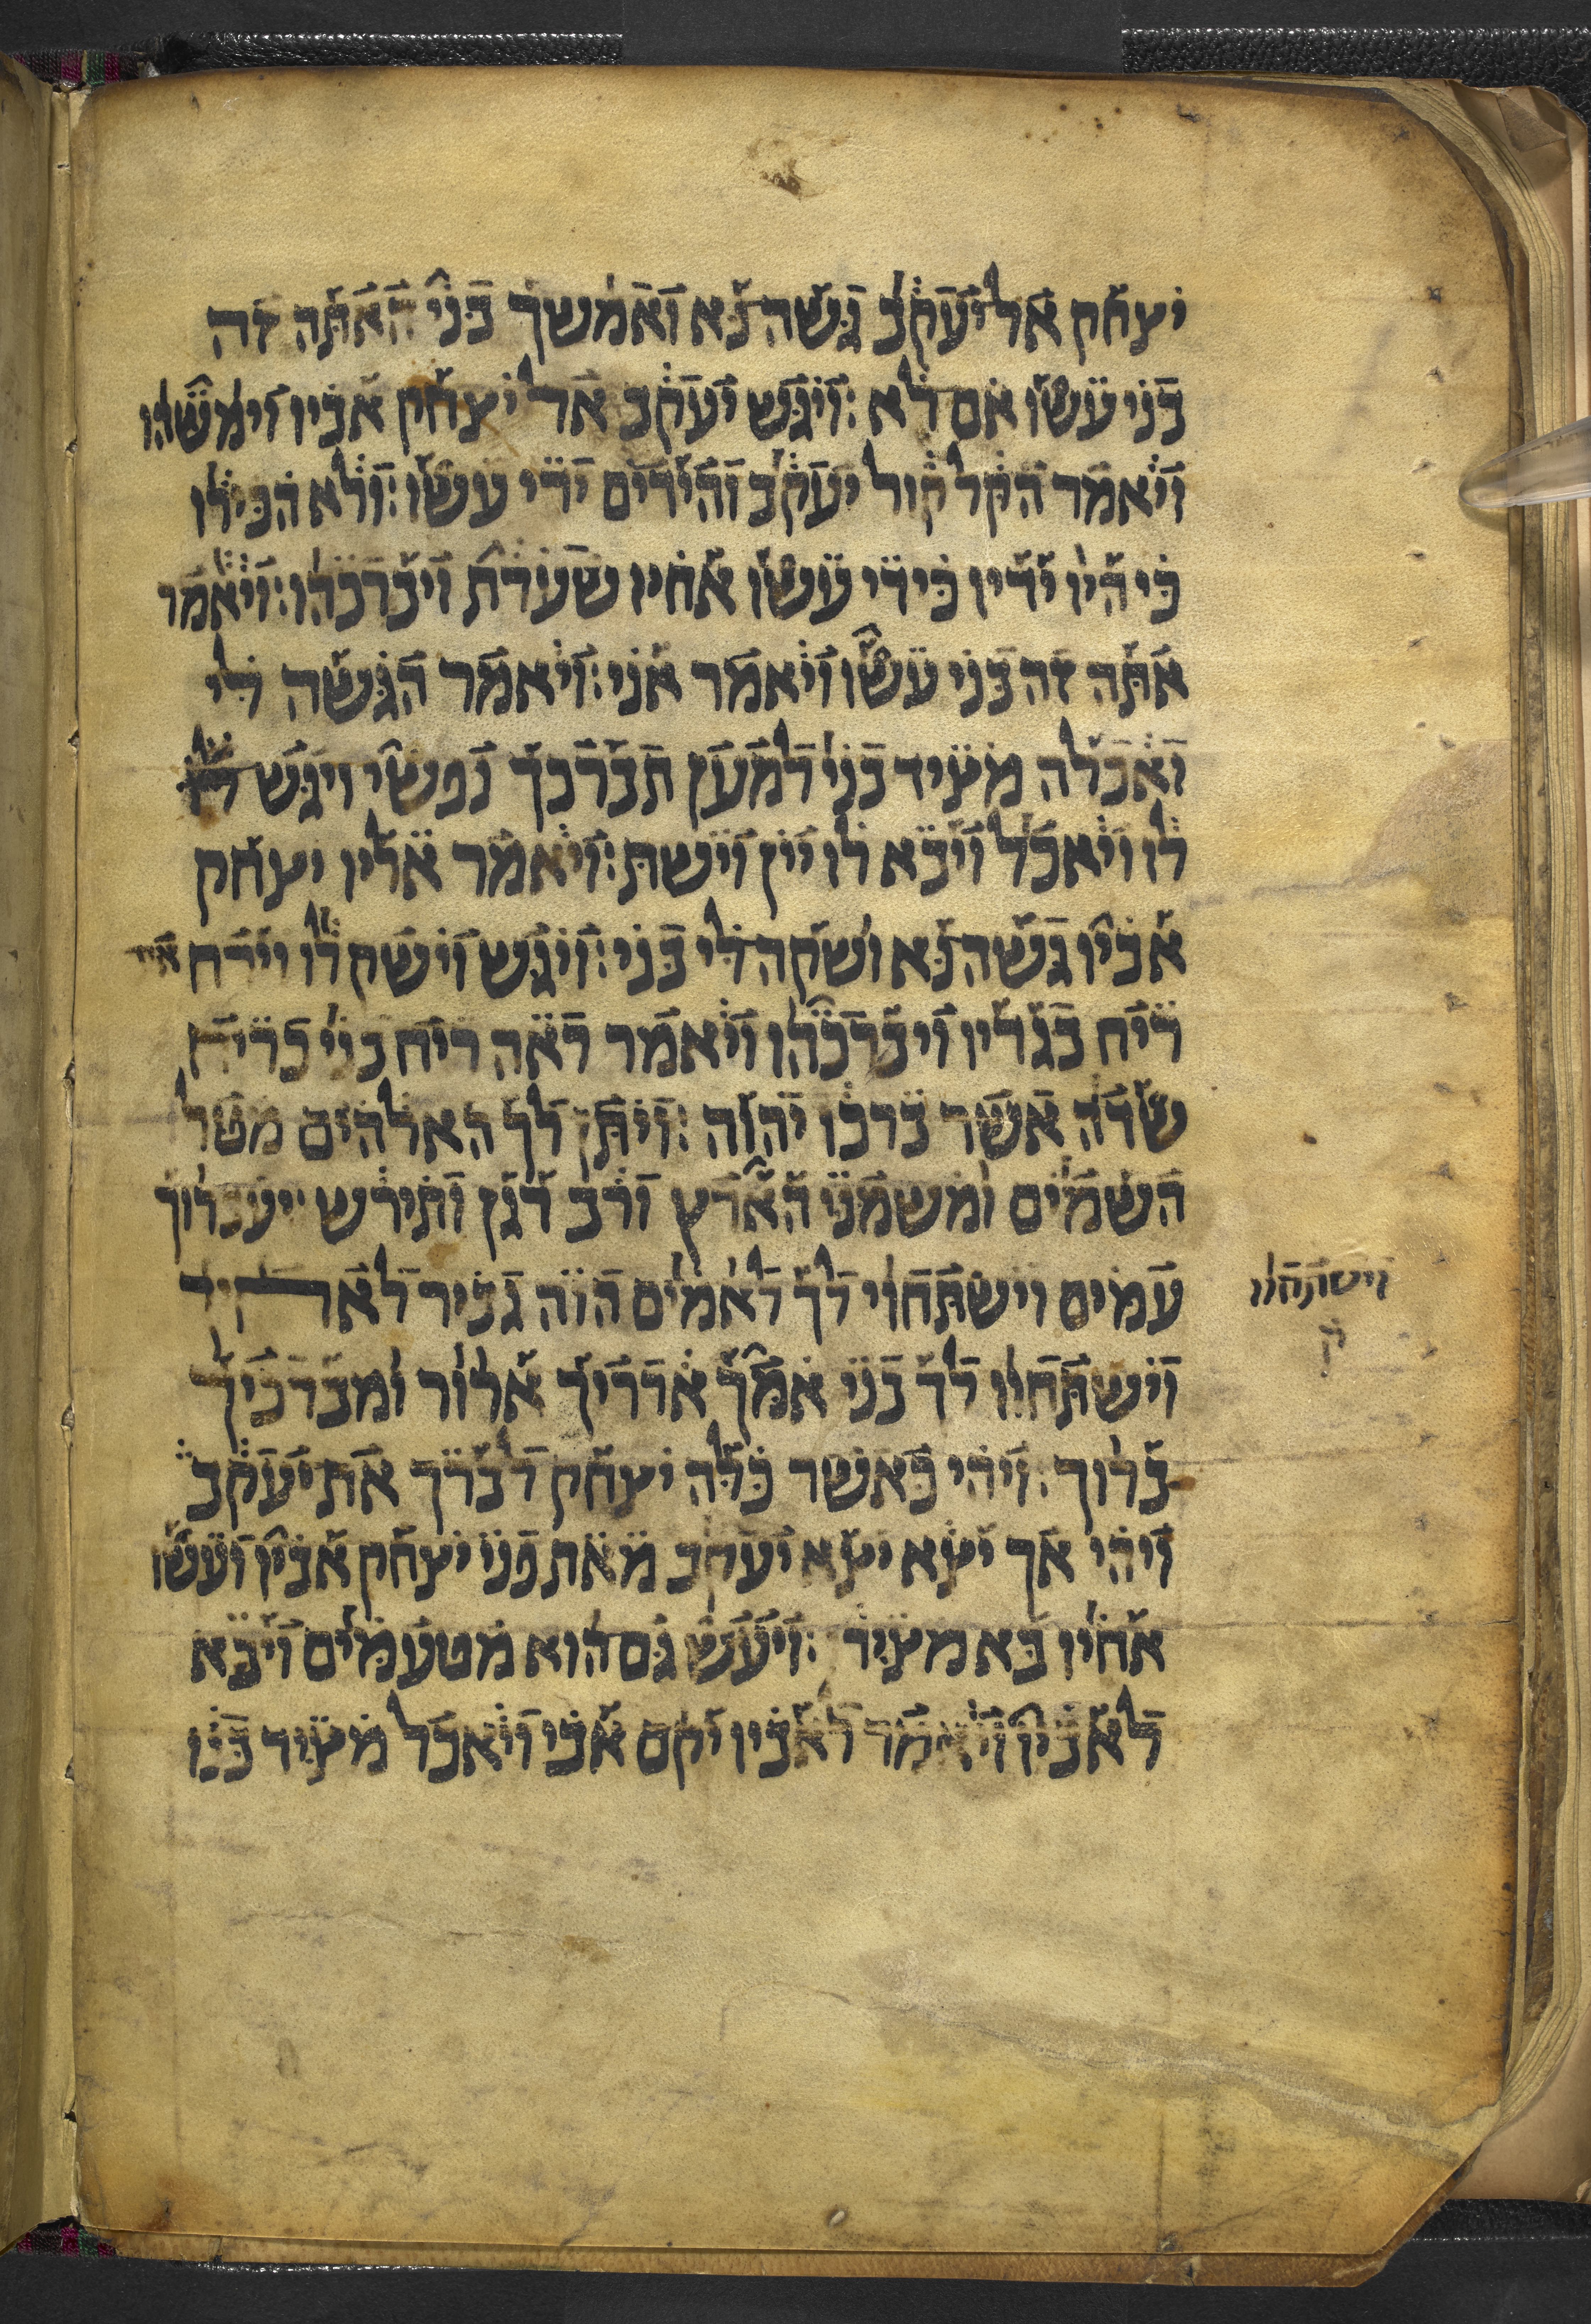 יצחק אל יעקב גשה נא ואמשך בני האתה זה
בני עשו אם לא : ויגש יעקב אל יצחק אביו וימשהו
ויאמר הקל קול יעקב והידים ידי עשו : ולא הכירו
כי היו ידיו כידי עשו אחיו שערת ויברכהו : ויאמר
אתה זה בני עשו ויאמר אני : ויאמר הגשה לי
ואכלה מציד בני למען תברכך נפשי ויגש
לו ויאכל ויבא לו יין וישת : ויאמר אליו יצחק
אביו גשה נא ושקה לי בני : ויגש וישק לו וירח את
ריח בגדיו ויברכהו ויאמר ראה ריח בני כריח
שדה אשר ברכו יהוה : ויתן לך האלהים מטל
השמים ומשמני הארץ ורב דגן ותירש יעבדוך
עמים וישתחוי לך לאמים הוה גביר לאחיך
וישתחוו
ק
וישתחוו לך בני אמך ארריך ארור ומברכיך
ברוך : ויהי כאשר כלה יצחק לברך את יעקב
ויהי אך יצא יצא יעקב מאת פני יצחק אביו ועשו
אחיו בא מצידו : ויעש גם הוא מטעמים ויבא
לאביו ויאמר לאביו יקם אבי ויאכל מציד בנו